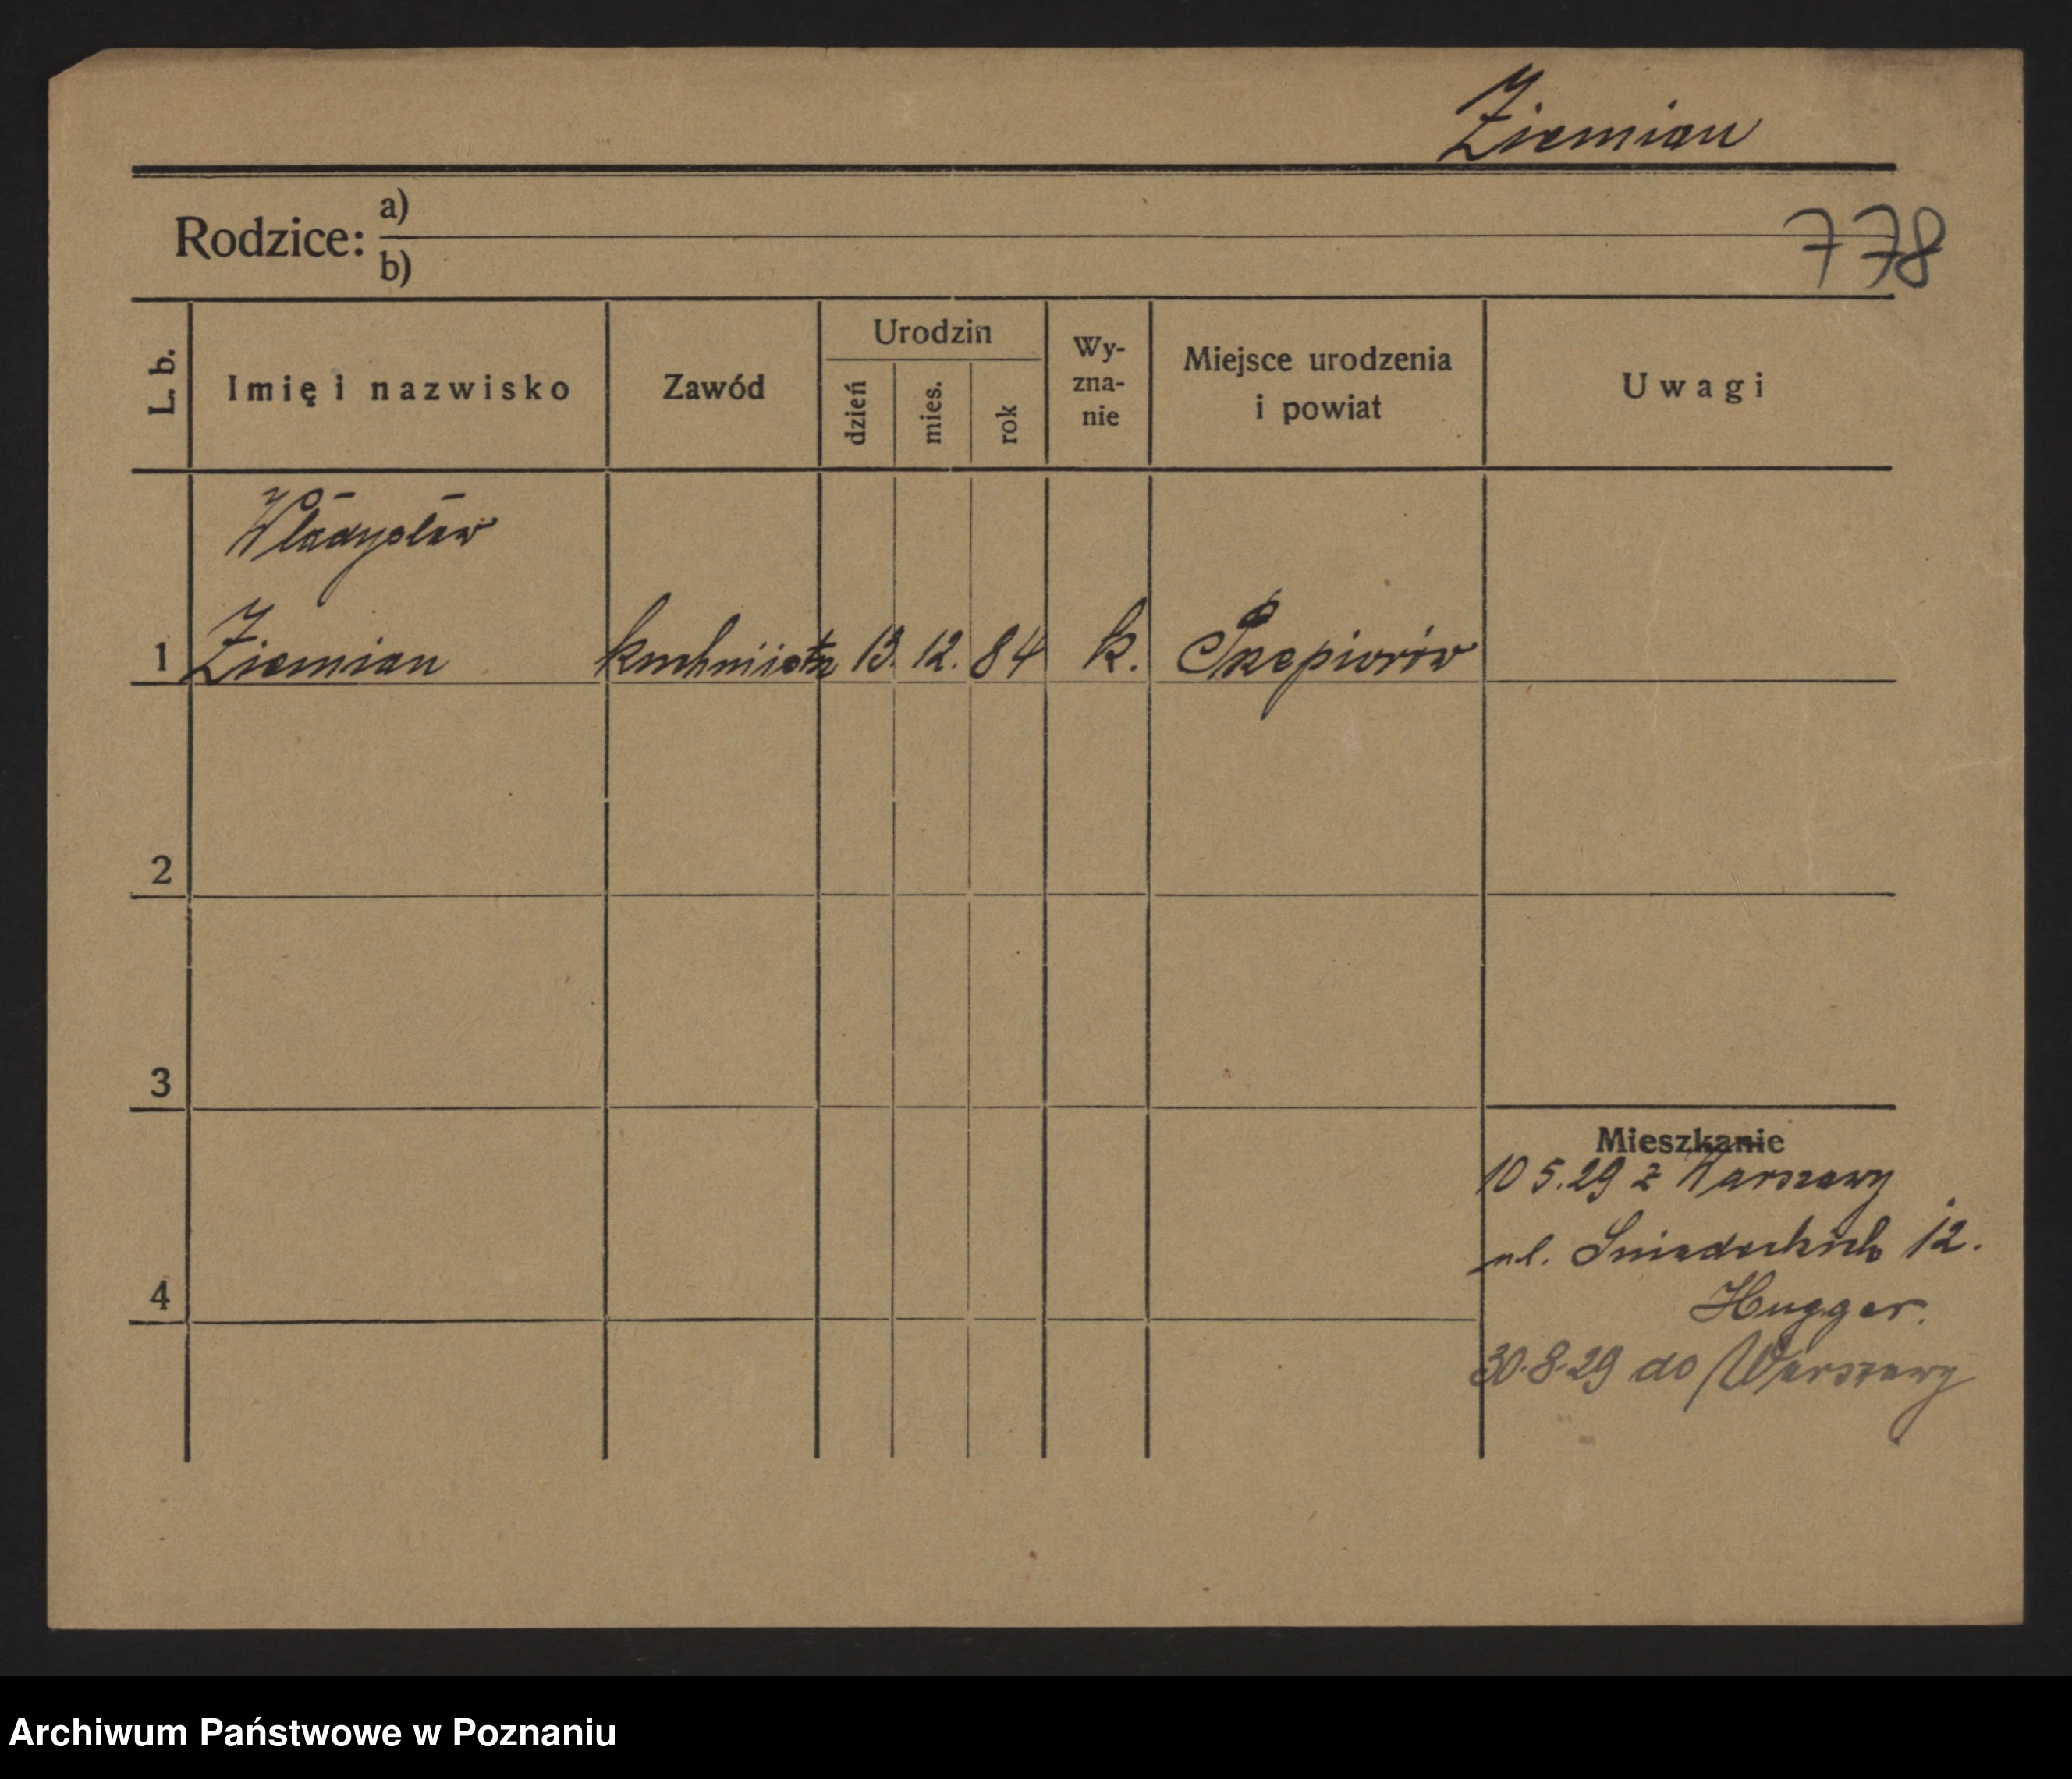 Ziemian
Rodzice: a)
b)
778
L. b.
Imię i nazwisko
Zawód
Urodzin
dzień
mies.
rok
Wy-
zna-
nie
Miejsce urodzenia
i powiat
Uwagi
Władysław
1 Ziemian kuchmistrz 13. 12. 84 k.
2
3
4
Mieszkanie
10 5.29 z Warszawy
ul. Śniadeckich 12.
Hugger.
30.8.29 do Warszawy
Archiwum Państwowe w Poznaniu